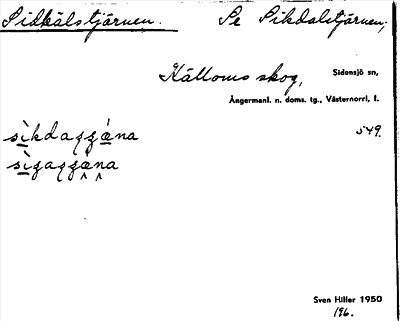 Sidkälstjärnen. Se Sikdalstjärnen;
Källoms skog, Sidensjö sn,
Ångermanl. n. doms. tg., Västernorrl. l.
549.
Sven Hiller 1950
196.